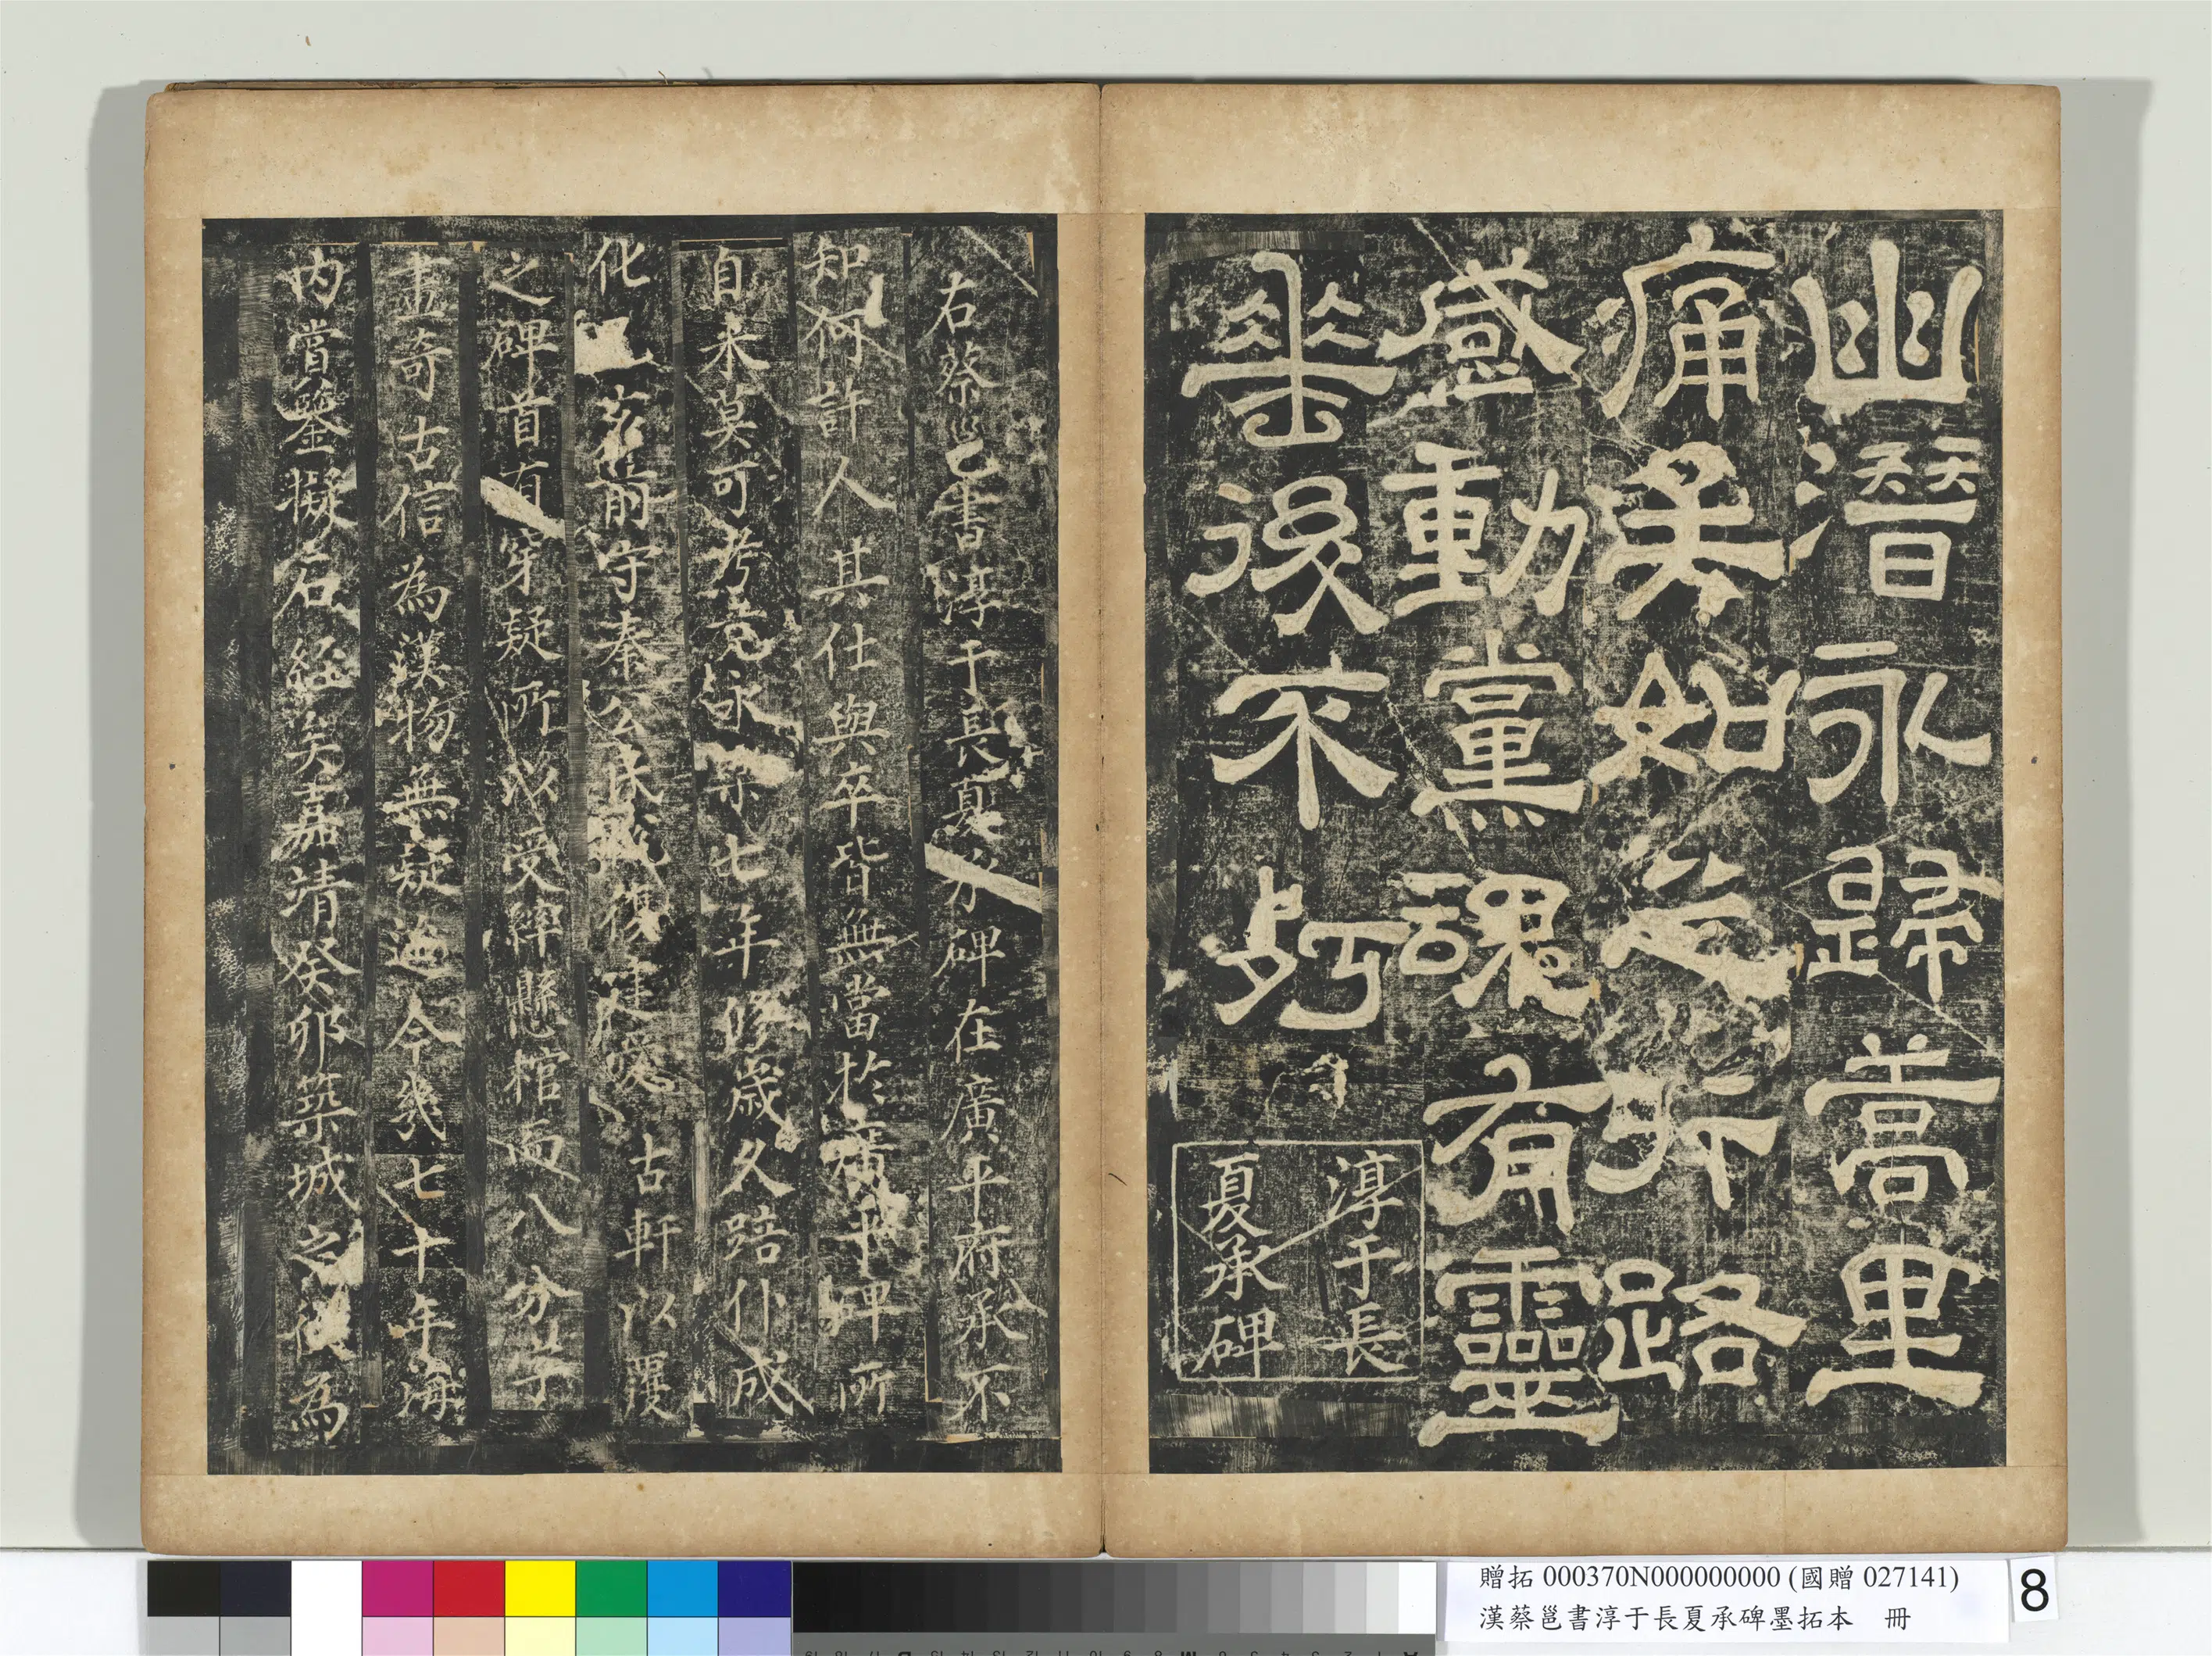 幽潛永歸蒿里
痛矣如之行路
感動黨魂有靈
垂後不朽
淳于長
夏承碑
右蔡邕書淳于長夏承碑在廣平府承不
知何許人其仕與卒皆無當於廣平碑所
自來莫可考竟永樂七年修歲久踣仆成
化 前守秦公民 復建愛古軒以覆
之碑首有穿疑所以受繂懸棺而八分字
畫奇古信為漢物無疑迨今幾七十年海
內嘗鑒擬石經矣嘉靖癸卯築城之役為
贈拓 000370N000000000 (國贈 027141)
漢蔡邕書淳于長夏承碑墨拓本 冊
8